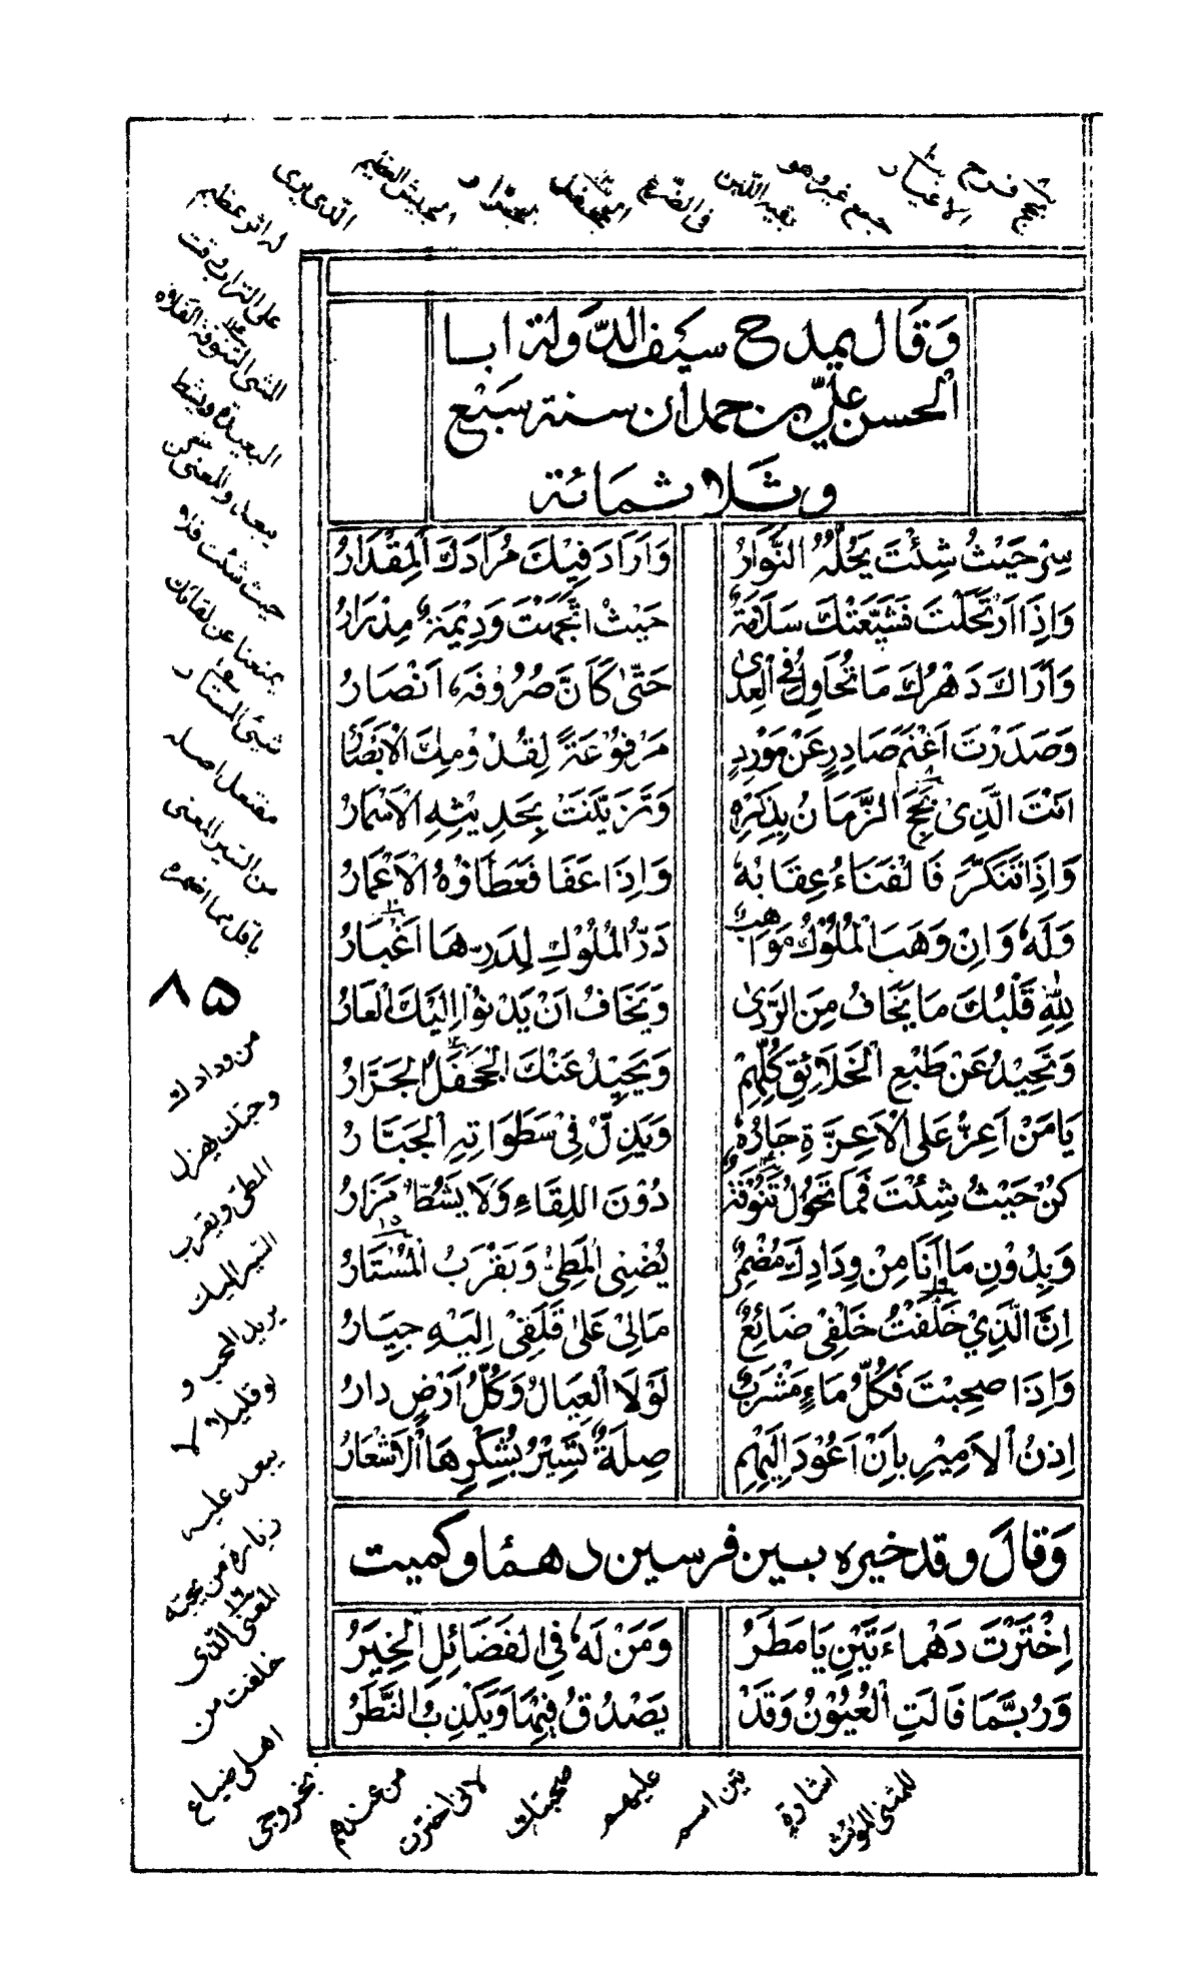 وَقَال يمدح سيف الدَّولة ابا
الحسن عليّ بن حمدان سنة سَبْع
وثَلاثمائة
سِرْ حَيْثُ شِئْتَ يَحُلُّهُ النُّوَّارُ وَاَرَادَ فِيْكَ مُرَادَكَ الْمِقْدَارُ
وَاِذَا ارْتَحَلْتَ فَشَيَّعَتْكَ سَلَامَةٌ حَيْثُ اتَّجَهْتَ وَدِيْمَةٌ مِدْرَارُ
وَاَرَاكَ دَهْرُكَ مَا تُحَاوِلُ فِي الْعِدٰى حَتّٰى كَاَنَّ صُرُوْفَهٗ اَنْصَارُ
وَصَدَرْتَ اَغْنَمَ صَادِرٍ عَنْ مَوْرِدٍ مَرْفُوْعَةً لِقُدُوْمِكَ الْاَبْصَارُ
اَنْتَ الَّذِيْ بَجِحَ الزَّمَانُ بِذِكْرِهٖ وَتَزَيَّنَتْ بِحَدِيْثِهِ الْاَسْمَارُ
وَاِذَا تَنَكَّرَ فَالْفَنَاءُ عِقَابُهٗ وَاِذَا عَفَا فَعَطَاؤُهُ الْاَعْمَارُ
وَلَهٗ وَاِنْ وَهَبَ الْمُلُوْكُ مَوَاهِبٌ دَرُّ الْمُلُوْكِ لِدَرِّهَا اَغْبَارُ
لِلّٰهِ قَلْبُكَ مَا يَخَافُ مِنَ الرَّدٰى وَيَخَافُ اَنْ يَدْنُوْ اِلَيْكَ الْعَارُ
وَتَحِيْدُ عَنْ طَبَعِ الْخَلَائِقِ كُلِّهِمْ وَيَحِيْدُ عَنْكَ الْجَحْفَلُ الْجَرَّارُ
يَا مَنْ يَعِزُّ عَلَى الْاَعِزَّةِ جَارُهٗ وَيَذِلُّ فِيْ سَطَوَاتِهِ الْجَبَّارُ
كُنْ حَيْثُ شِئْتَ فَمَا تَحُوْلُ تَنُوْفَةٌ دُوْنَ اللِّقَاءِ وَلَا يَشُطُّ مَزَارُ
وَبِدُوْنِ مَا اَنَا مِنْ وِدَادِكَ مُضْمِرٌ يُضْنَى الْمَطِيُّ وَيَقْرَبُ الْمُسْتَارُ
اِنَّ الَّذِيْ خَلَّفْتُ خَلْفِيْ ضَائِعٌ مَالِيْ عَلٰى قَلَقِيْ اِلَيْهِ خِيَارُ
وَاِذَا صُحِبْتَ فَكُلُّ مَاءٍ مَشْرَبٌ لَوْلَا الْعِيَالُ وَكُلُّ اَرْضٍ دارُ
اِذْنُ الْاَمِيْرِ بِاَنْ اَعُوْدَ اِلَيْهِمِ صِلَةٌ تَسِيْرُ بِشُكْرِهَا الْاَشْعَارُ
وَقالَ وقد خيره بين فرسين دهماء وكميت
اِخْتَرْتَ دَهْمَاءَ تَيْنِ يَا مَطَرُ وَمَنْ لَهٗ فِي الْفَضَائِلِ الْخِيَرُ
وَرُبَّمَا قَالَتِ الْعُيُوْنُ وَقَدْ يَصْدُقُ فِيْهَا وَيَكْذِبُ النَّظَرُ
الجيش العظيم
الّذى يرى
له اثر عظيم
على التراب
البعيدة ويشط
يبعد والمعنى كن
حيث شئت فلا
يمنعنا عن لقائك
شىء المستار
مفتعل اصله
من السير المعنى
باقل مما اضمره
٨٥
من ودادك
وحبك يهزل
المطى ويقرب
السير اليك
يريد الحب و
لو قليلا لا
يبعد عليه
زيارة من يحبه
المعنى الذى
خلفت من
اهلى ضياع
بخروجى
من عندهم
لانى اخترت
صحبتك
عليهم
تين اسم
اشارة
للمثنى المؤنث